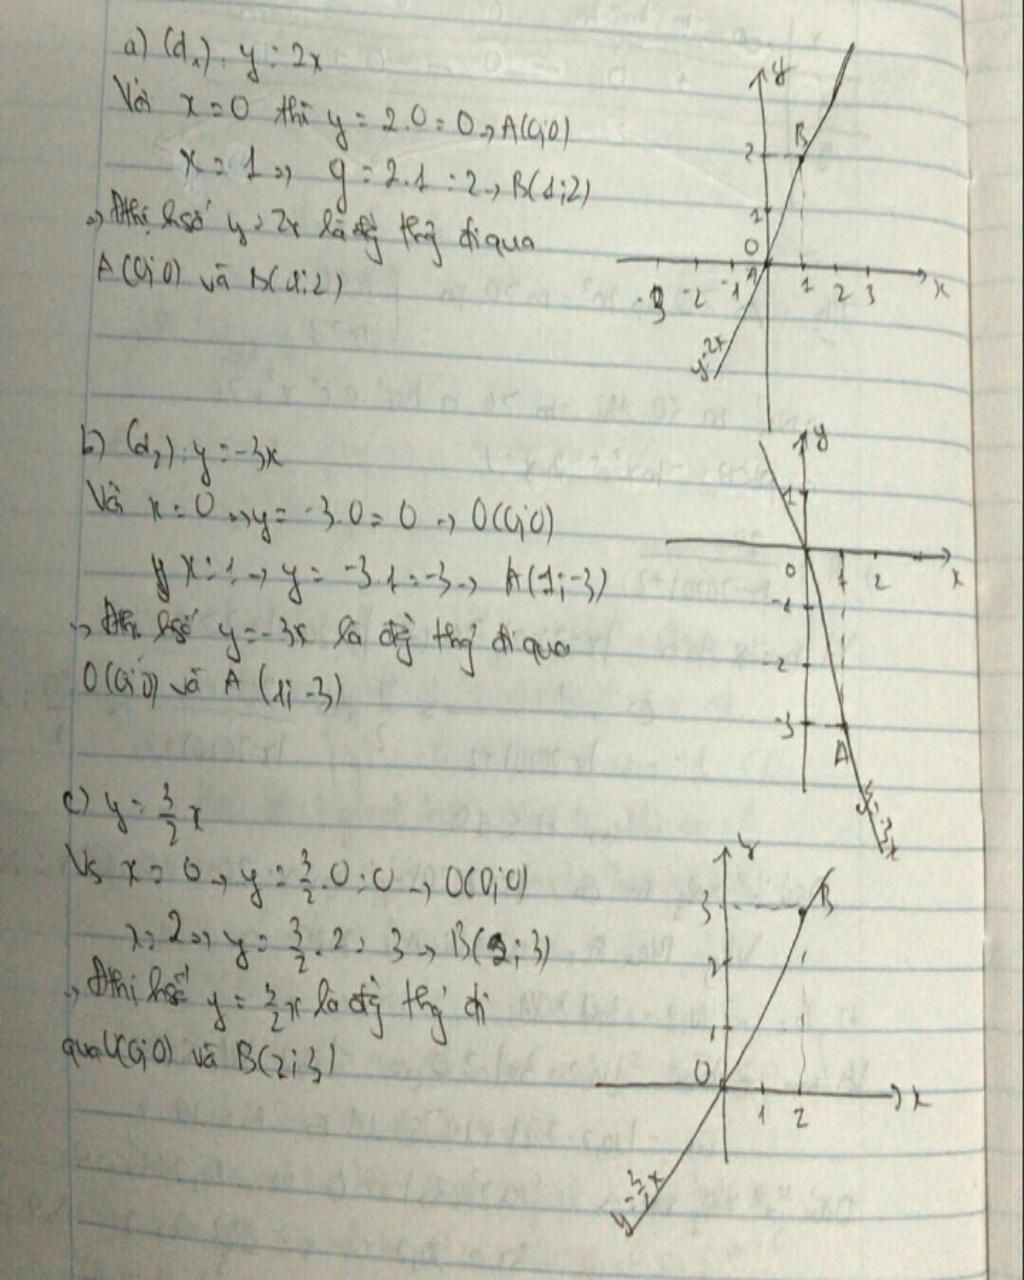 a) (d₁): y = 2x
Với x = 0 thì y = 2.0 = 0 → A(0;0)
x = 1 → y = 2.1 = 2 → B(1;2)
→ Đthị hsố y = 2x là đg thg đi qua
A(0;0) và B(1;2)
y
B
2
1
O
A
-3 -2 -1 1 2 3 x
y=2x
b) (d₂): y = -3x
Với x = 0 → y = -3.0 = 0 → O(0;0)
x = 1 → y = -3.1 = -3 → A(1;-3)
→ Đthị hsố y = -3x là đg thg đi qua
O(0;0) và A (1; -3)
y
1
0 1 2 x
-1
-2
-3
A
y=-3x
c) y = 3/2 x
Vs x = 0 → y = 3/2 . 0 = 0 → O(0;0)
x = 2 → y = 3/2 . 2 = 3 → B(2;3)
→ Đthị hsố y = 3/2 x là đg thg đi
qua O(0;0) và B(2;3)
y
3 B
2
1
O 1 2 x
y=3/2 x